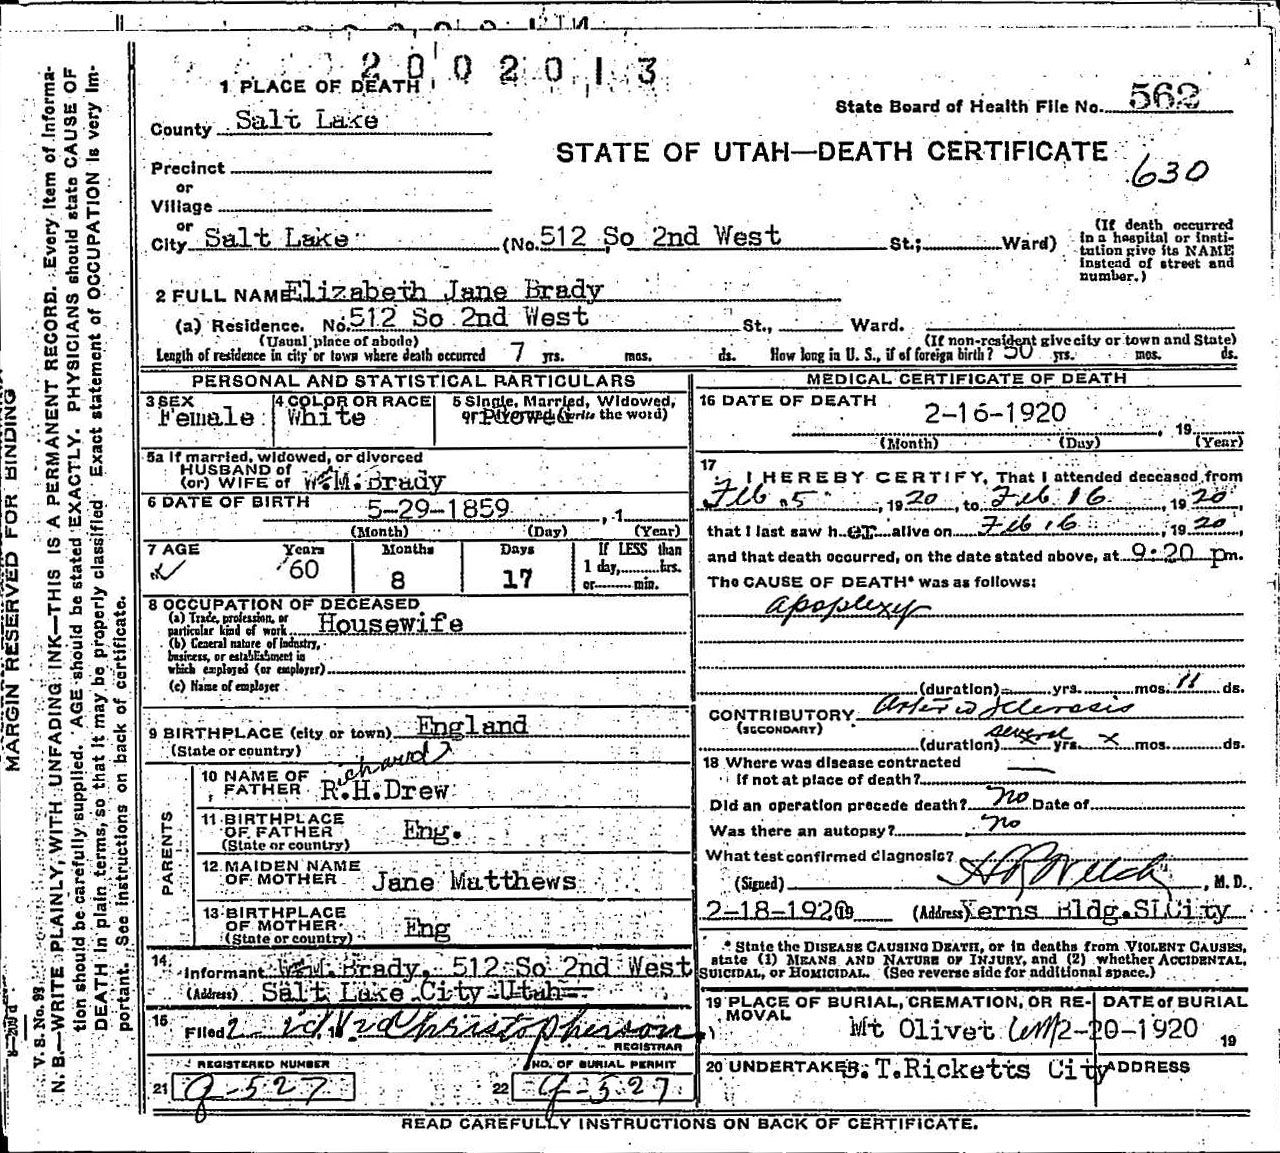 2002013
1 PLACE OF DEATH
State Board of Health File No. 562
County Salt Lake
STATE OF UTAH—DEATH CERTIFICATE
630
Precinct
or
Village
or
City Salt Lake (No. 512 So 2nd West St.; Ward)
(If death occurred in a hospital or institution give its NAME instead of street and number.)
2 FULL NAME Elizabeth Jane Brady
(a) Residence. No. 512 So 2nd West St., Ward.
(Usual place of abode) (If non-resident give city or town and State)
Length of residence in city or town where death occurred 7 yrs. mos. ds. How long in U. S., if of foreign birth? 50 yrs. mos. ds.
PERSONAL AND STATISTICAL PARTICULARS
3 SEX Female
4 COLOR OR RACE White
5 Single, Married, Widowed, or Divorced (write the word)
5a If married, widowed, or divorced
HUSBAND of
(or) WIFE of Wm.M.Brady
6 DATE OF BIRTH 5-29-1859 , 1
(Month) (Day) (Year)
7 AGE Years 60 Months 8 Days 17 If LESS than 1 day, hrs. or min.
8 OCCUPATION OF DECEASED
(a) Trade, profession, or particular kind of work Housewife
(b) General nature of industry, business, or establishment in which employed (or employer)
(c) Name of employer
9 BIRTHPLACE (city or town) England
(State or country)
PARENTS
10 NAME OF FATHER R.H.Drew
Richard
11 BIRTHPLACE OF FATHER (State or country) Eng.
12 MAIDEN NAME OF MOTHER Jane Matthews
13 BIRTHPLACE OF MOTHER (State or country) Eng
14 Informant Wm.M.Brady, 512 So 2nd West
(Address) Salt Lake City Utah
15 Filed 2- Christopherson
REGISTRAR
REGISTERED NUMBER NO. OF BURIAL PERMIT
21 9-527 22 9-527
MEDICAL CERTIFICATE OF DEATH
16 DATE OF DEATH 2-16-1920 , 19
(Month) (Day) (Year)
17 I HEREBY CERTIFY, That I attended deceased from
Feb. 5 , 1920 to Feb 16 , 1920,
that I last saw her alive on Feb 16 , 1920
and that death occurred, on the date stated above, at 9:20 pm.
The CAUSE OF DEATH* was as follows:
apoplexy
(duration) yrs. mos. 11 ds.
CONTRIBUTORY Arterio sclerosis
(SECONDARY)
(duration) several yrs. x mos. ds.
18 Where was disease contracted
if not at place of death?
Did an operation precede death? no Date of
Was there an autopsy? no
What test confirmed diagnosis?
(Signed) Welch , M. D.
2-18-1920 19 (Address) Kerns Bldg.SLCity
* State the DISEASE CAUSING DEATH, or in deaths from VIOLENT CAUSES, state (1) MEANS AND NATURE OF INJURY, and (2) whether ACCIDENTAL, SUICIDAL, or HOMICIDAL. (See reverse side for additional space.)
19 PLACE OF BURIAL, CREMATION, OR REMOVAL DATE of BURIAL
Mt Olivet Cem 2-20-1920 19
20 UNDERTAKER S.T.Ricketts City ADDRESS
READ CAREFULLY INSTRUCTIONS ON BACK OF CERTIFICATE.
MARGIN RESERVED FOR BINDING
V. S. No. 99
N. B.—WRITE PLAINLY, WITH UNFADING INK—THIS IS A PERMANENT RECORD. Every item of information should be carefully supplied. AGE should be stated EXACTLY. PHYSICIANS should state CAUSE OF DEATH in plain terms, so that it may be properly classified. Exact statement of OCCUPATION is very important. See instructions on back of certificate.